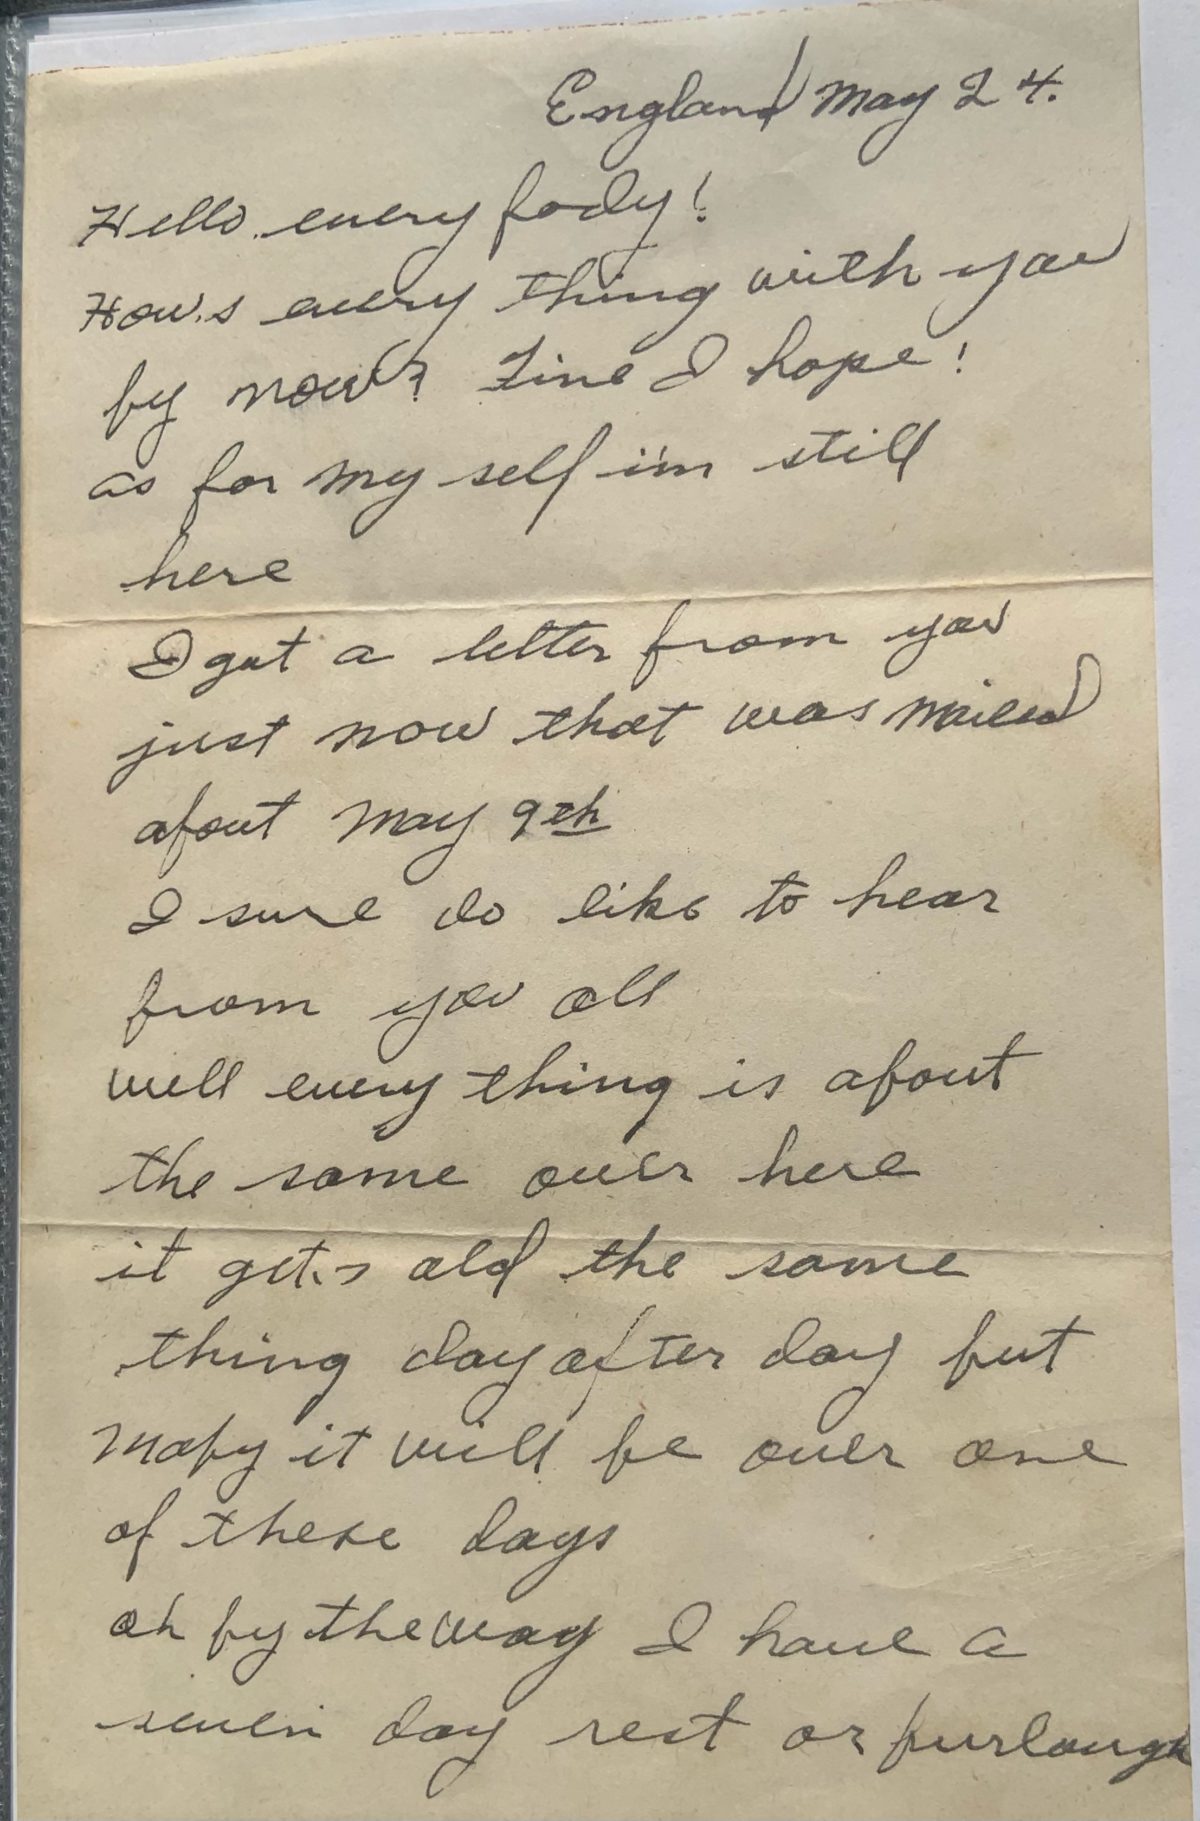 England May 24.
Hello every body!
How's every thing with you
by now? Fine I hope!
as for my self i'm still
here
I got a letter from you
just now that was mailed
about May 9th
I sure do like to hear
from you all
well every thing is about
the same over here
it gets old the same
thing day after day but
maby it will be over one
of these days
oh by the way I have a
seven day rest or furlough